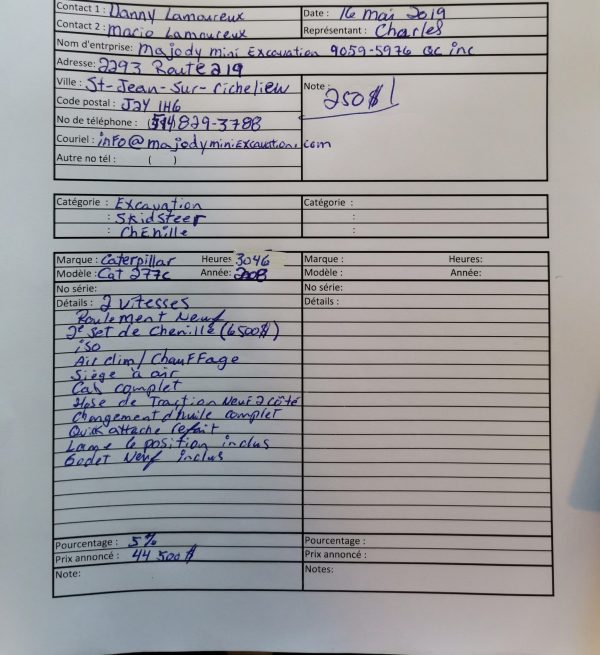 Contact 1 : Danny Lamoureux Date : 16 mai 2019
Contact 2 : Mario Lamoureux Représentant : Charles
Nom d'entrprise: Majody mini Excavation 9059-5976 QC inc
Adresse: 2293 Route 219
Ville : St-Jean-Sur-richelieu Note :
250$!
Code postal : J2Y 1H6
No de téléphone : (514) 829-3788
Courriel : info@majodyminiexcavation.com
Autre no tél : ( )
Catégorie : Excavation Catégorie :
: Skidsteer :
: Chenille :
Marque : Caterpillar Heures: 3046 Marque : Heures:
Modèle : Cat 277c Année: 2008 Modèle : Année:
No série: No série:
Détails : 2 vitesses Détails :
Roulement Neuf
2e set de chenille (6500$)
iso
Air clim/Chauffage
Siège à air
Cab complet
Hose de Traction Neuf 2 côté
Changement d'huile complet
Quick attache refait
Lame 6 position inclus
Godet Neuf inclus
Pourcentage : 5% Pourcentage :
Prix annoncé : 44 500$ Prix annoncé :
Note: Notes: